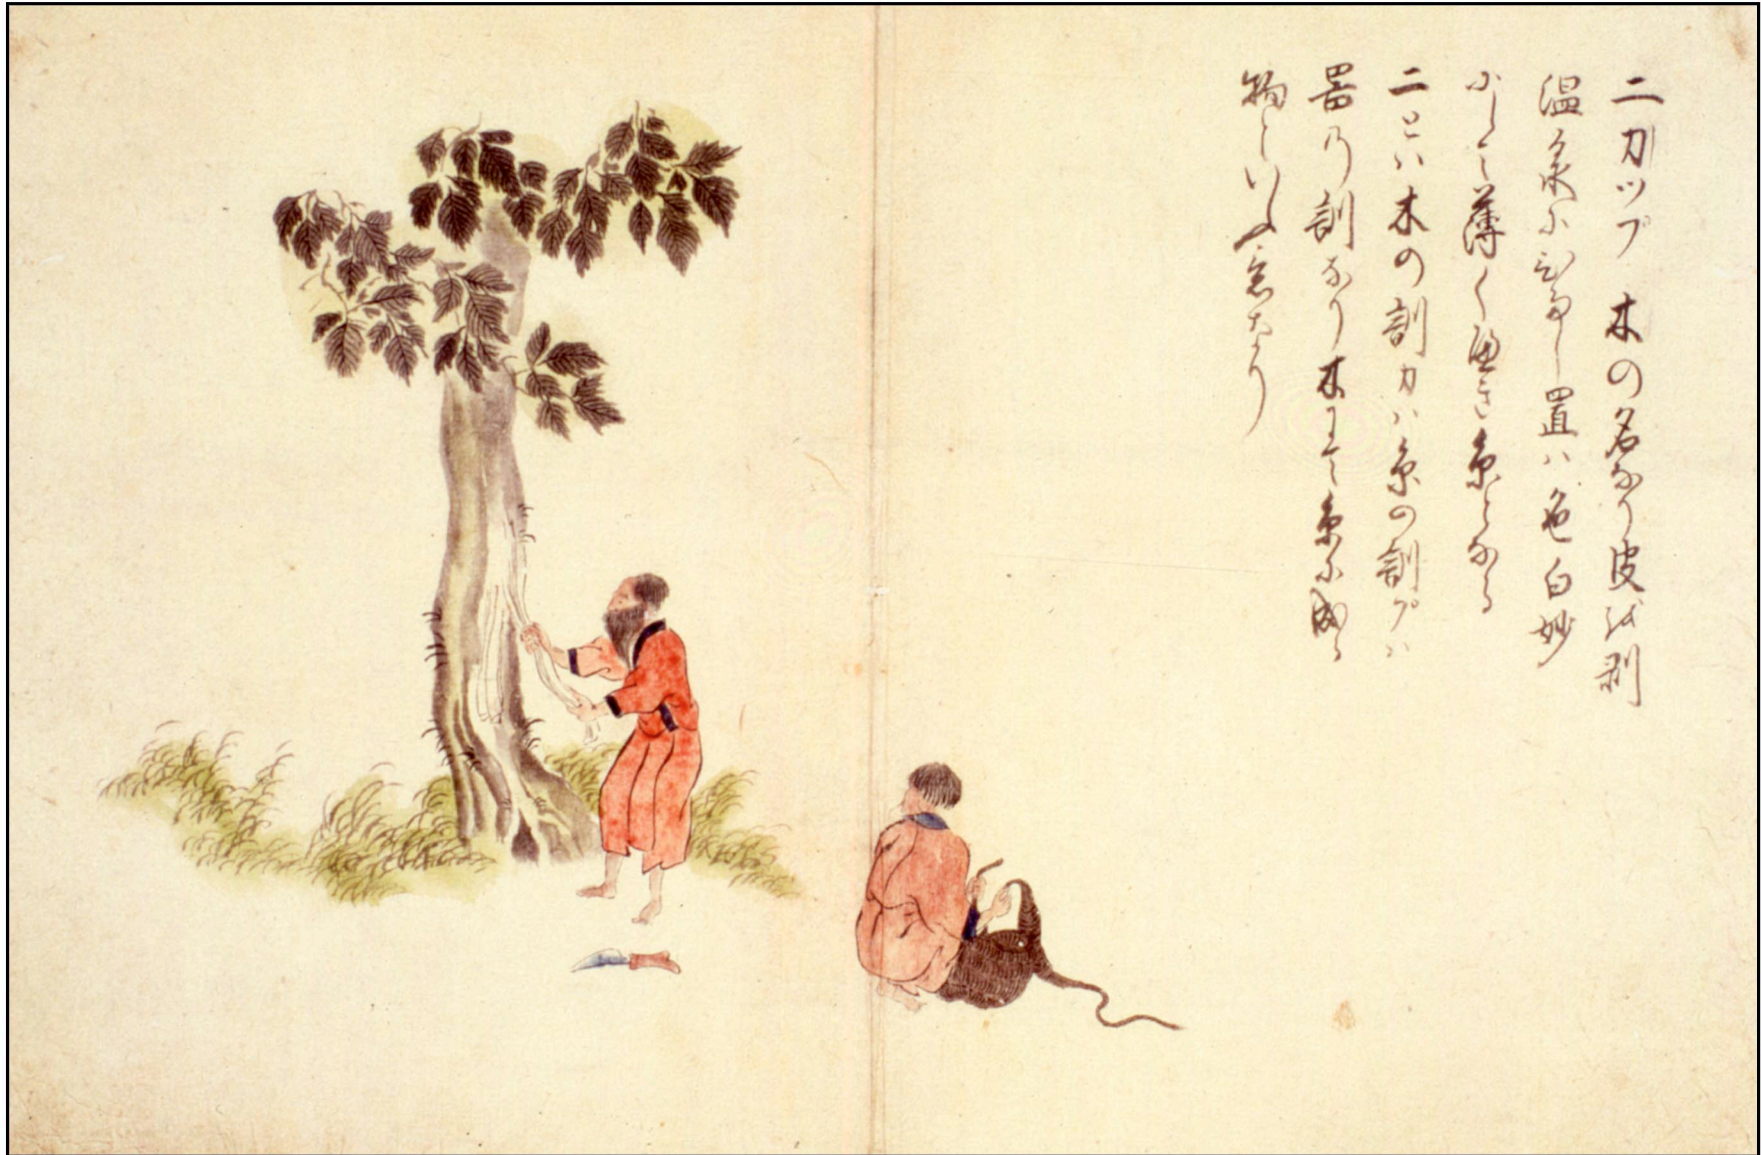 ニカツプ 木の名なり皮を剥
温泉にひたし置ハ色白妙
にして薄く
ニとハ木の訓カハ糸の訓プハ
器の訓なり木にて糸に成る
物といふ意なり